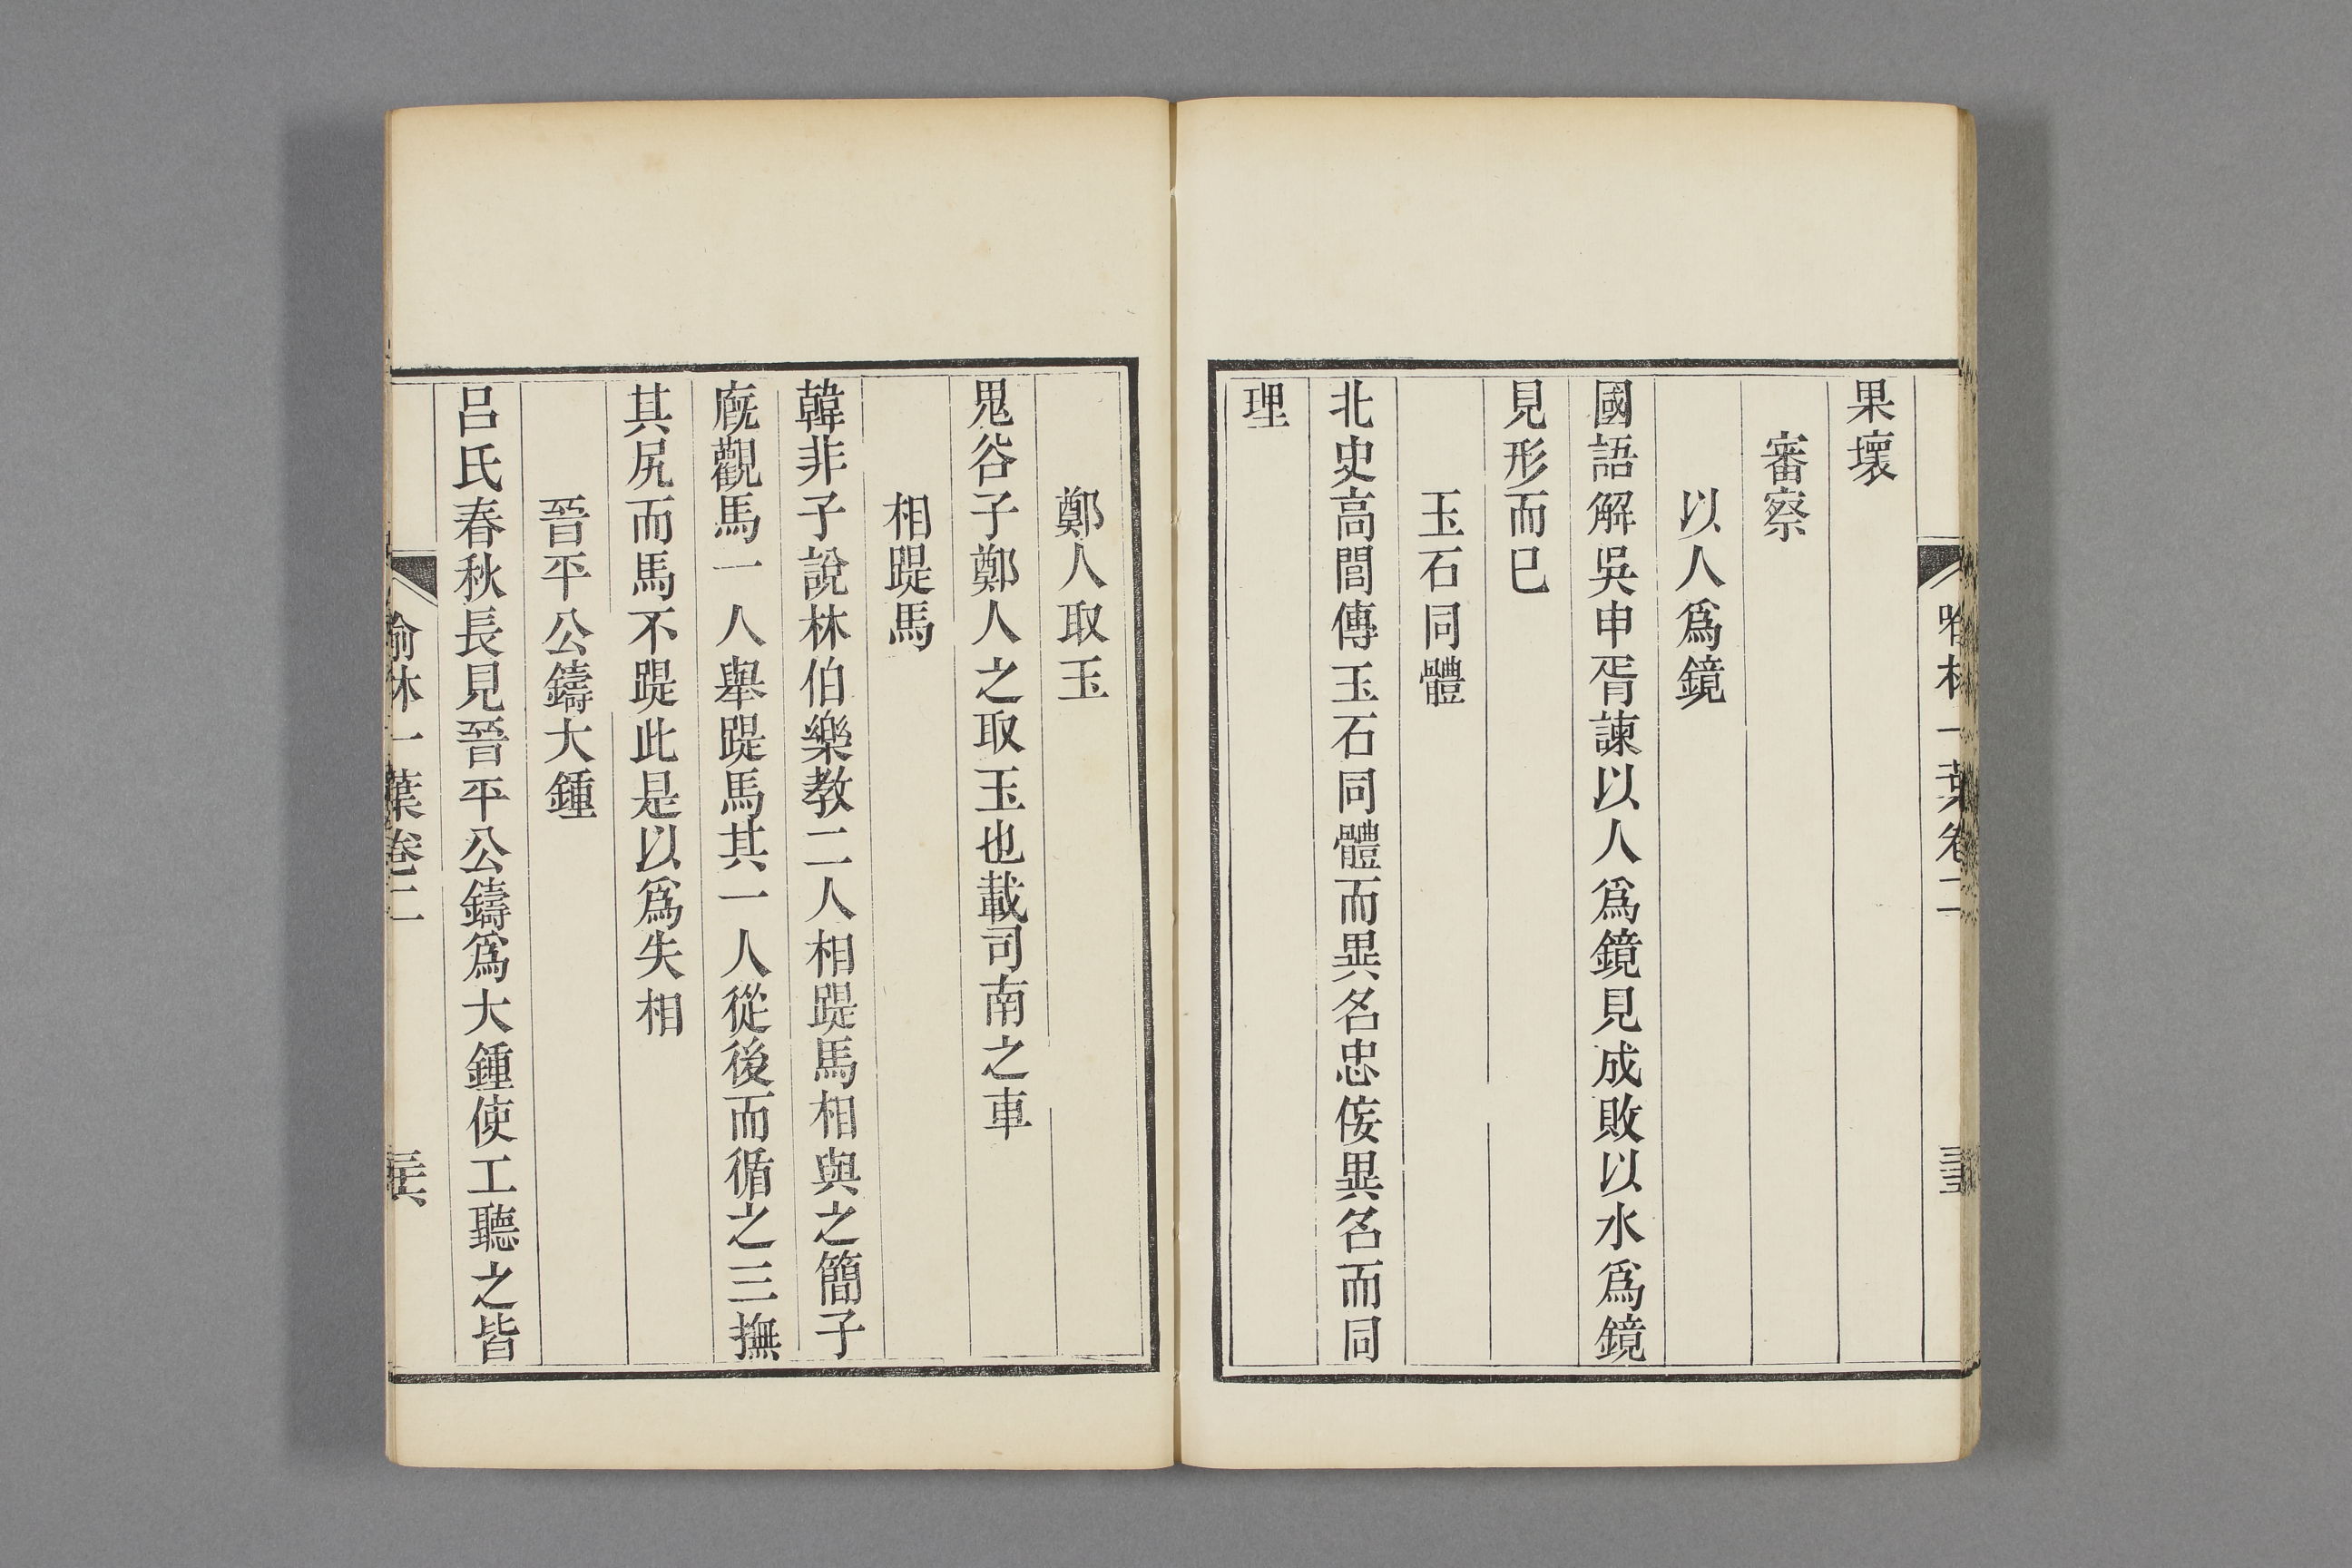 果壞
審察
以人爲鏡
國語解吳申胥諫以人爲鏡見成敗以水爲鏡
見形而已
玉石同體
北史高閭傳玉石同體而異名忠佞異名而同
理
鄭人取玉
鬼谷子鄭人之取玉也載司南之車
相踶馬
韓非子說林伯樂教二人相踶馬相與之簡子
廐觀馬一人舉踶馬其一人從後而循之三撫
其尻而馬不踶此是以爲失相
晉平公鑄大鍾
呂氏春秋長見晉平公鑄爲大鍾使工聽之皆
喻林一葉卷二